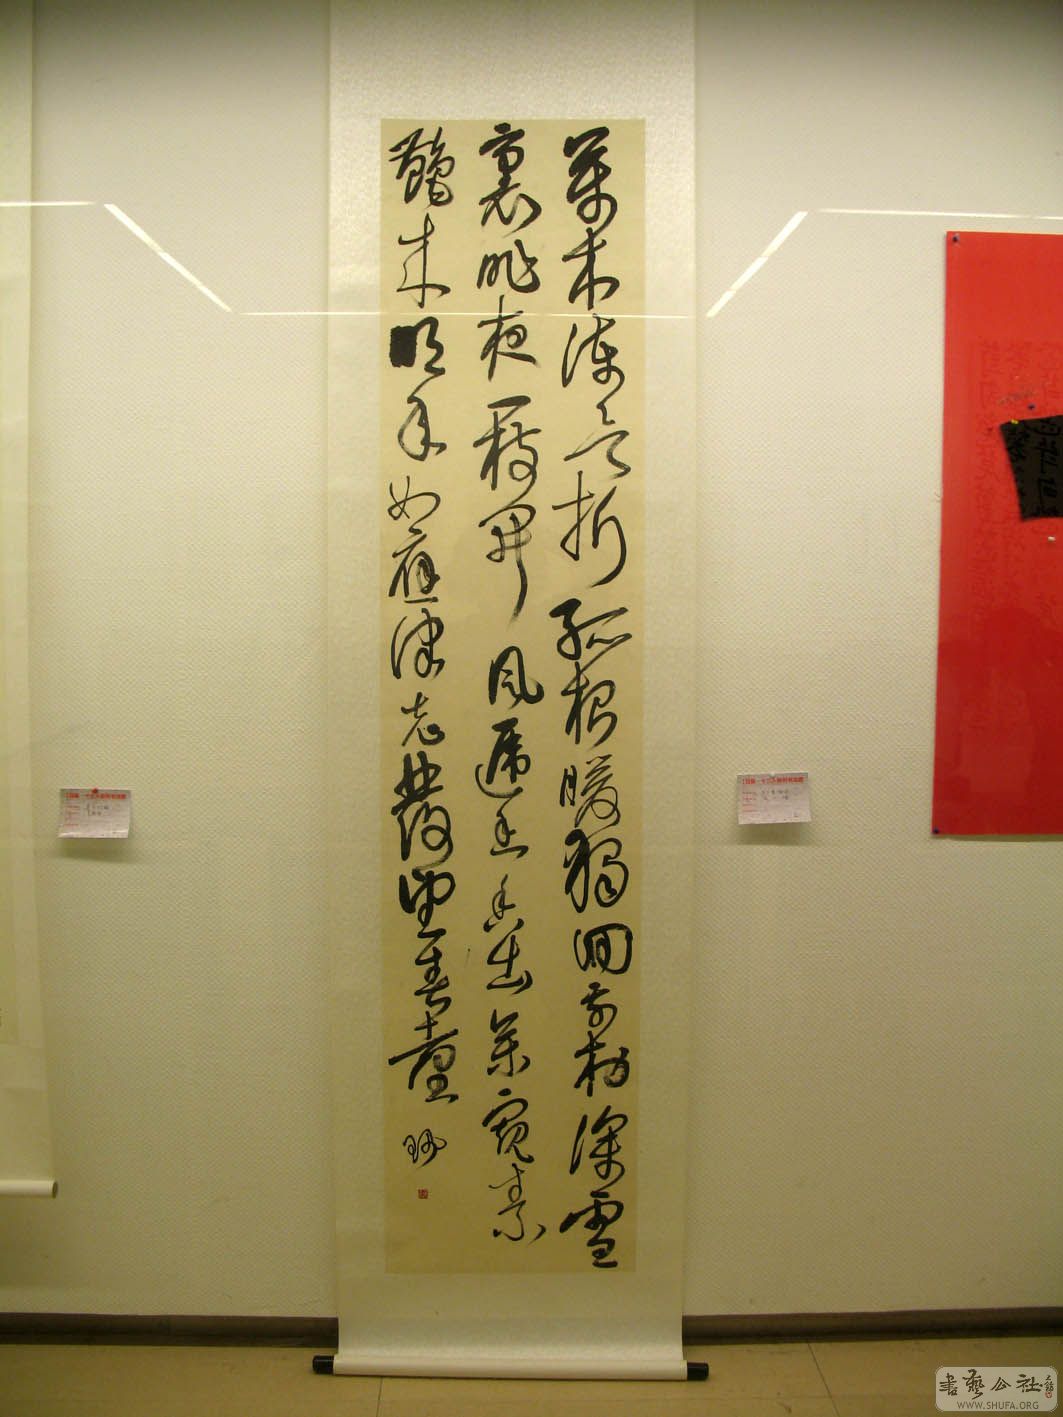 萬木凍欲折孤根暖獨回前村深雪
裏昨夜一枝開風遞幽香出禽窺素
艷來明年如應律先發望春臺
書藝公社
WWW.SHUFA.ORG